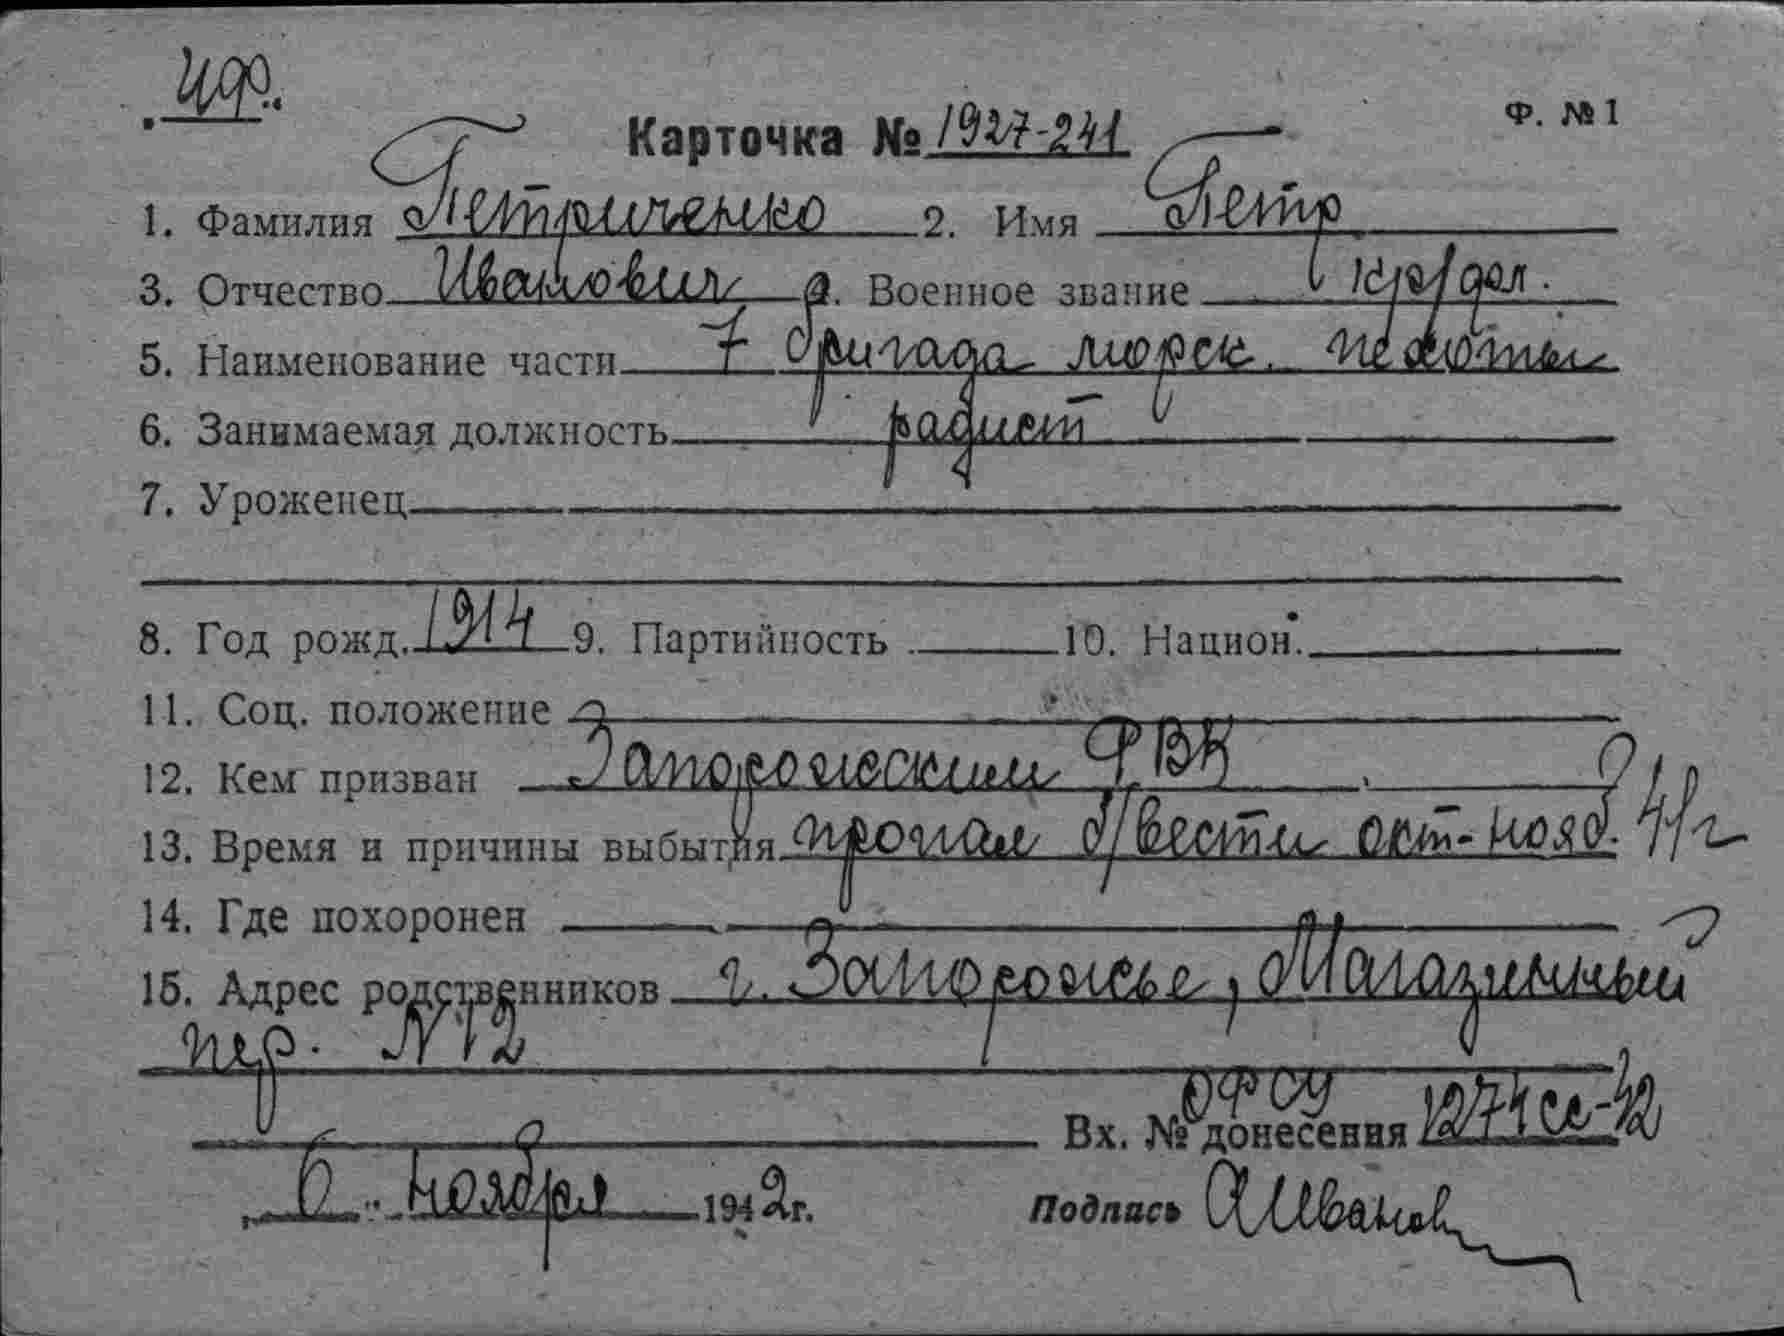 Ф. №1
Карточка № 1927-241
1. Фамилия Петриченко 2. Имя Петр
3. Отчество Иванович 4. Военное звание кр/фл.
5. Наименование части 7 бригада морск. пехоты
6. Занимаемая должность радист
7. Уроженец
8. Год рожд. 1914 9. Партийность 10. Национ.
11. Соц. положение
12. Кем призван Запорожским РВК
13. Время и причины выбытия пропал б/вести окт-нояб. 41г
14. Где похоронен
15. Адрес родственников г. Запорожье, Магазинный
пер. N 12
ОФСУ
Вх. № донесения 1274сс-42
6 ноября 1942г. Подпись АИванов